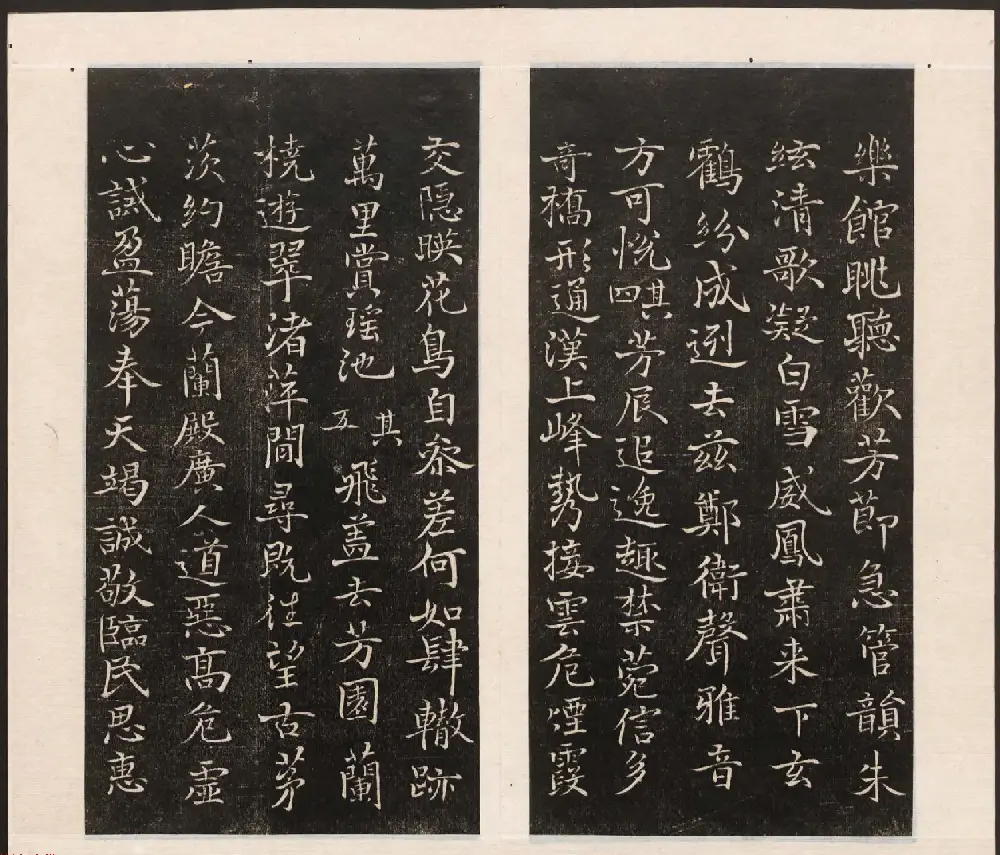 樂館眺聽歡芳莭急管韻朱
絃清歌凝白雪威鳳肅来下玄
鶴紛成迾去兹鄭衛聲雅音
方可悅其四芳辰追逸趣禁菀信多
奇橋形通漢上峰勢接雲危煙霞
交隱暎花鳥自叅差何如肆轍跡
萬里賞瑤池其五飛盖去芳園蘭
橈遊翠渚萍間尋既往望古茅
茨約瞻今蘭殿廣人道惡高危虛
心誡盈蕩奉天竭誠敬臨民思惠